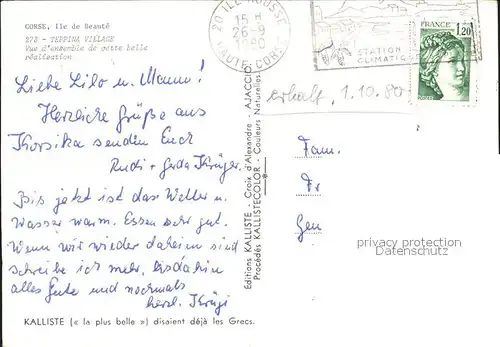 CORSE, Ile de Beauté
278 - TERRINA VILLAGE
Vue d'ensemble de cette belle
réalisation
20 ILE ROUSSE
15 H
26-9
1980
HAUTE-CORSE
STATION
CLIMATIQUE
FRANCE
1,20
POSTES
erhalt, 1.10.80
Liebe Lilo u. Manni!
Herzliche Grüße aus
Korsika senden Euch
Rudi + Gerda Krüger.
Bis jetzt ist das Wetter u.
Wasser warm. Essen sehr gut.
Wenn wir wieder daheim sind
schreibe ich mehr, bis dahin
alles Gute und nochmals
herzl. Krügi
Editions KALLISTE - Croix d'Alexandre - AJACCIO
Procédés KALLISTECOLOR - Couleurs Naturelles
Fam.
Fr
Gen
privacy protection
Datenschutz
KALLISTE (« la plus belle ») disaient déjà les Grecs.